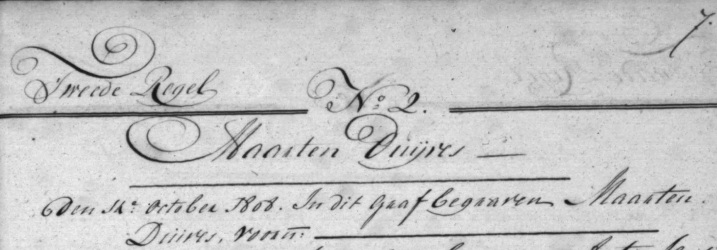 7.
Tweede Regel
No. 2.
Maarten Duijves
Den 14e. October 1808. In dit Graaf begraaven Maarten
Duives. voorn: